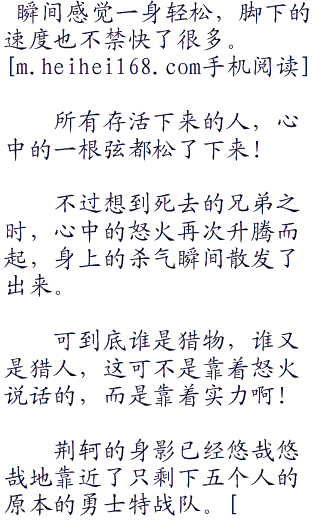 瞬间感觉一身轻松，脚下的
速度也不禁快了很多。
[m.heihei168.com手机阅读]
所有存活下来的人，心
中的一根弦都松了下来！
不过想到死去的兄弟之
时，心中的怒火再次升腾而
起，身上的杀气瞬间散发了
出来。
可到底谁是猎物，谁又
是猎人，这可不是靠着怒火
说话的，而是靠着实力啊！
荆轲的身影已经悠哉悠
哉地靠近了只剩下五个人的
原本的勇士特战队。[